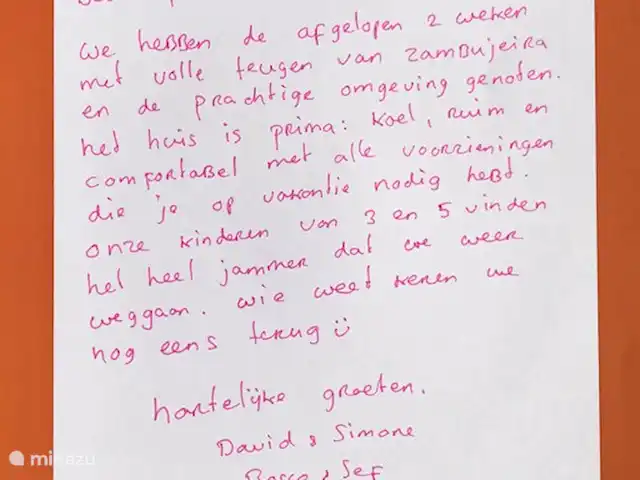 we hebben de afgelopen 2 weken
met volle teugen van Zambujeira
en de prachtige omgeving genoten.
het huis is prima: koel, ruim en
comfortabel met alle voorzieningen
die je op vakantie nodig hebt.
onze kinderen van 3 en 5 vinden
het heel jammer dat we weer
weggaan. wie weet keren we
nog eens terug ü
hartelijke groeten.
David & Simone
& Sef
micazu